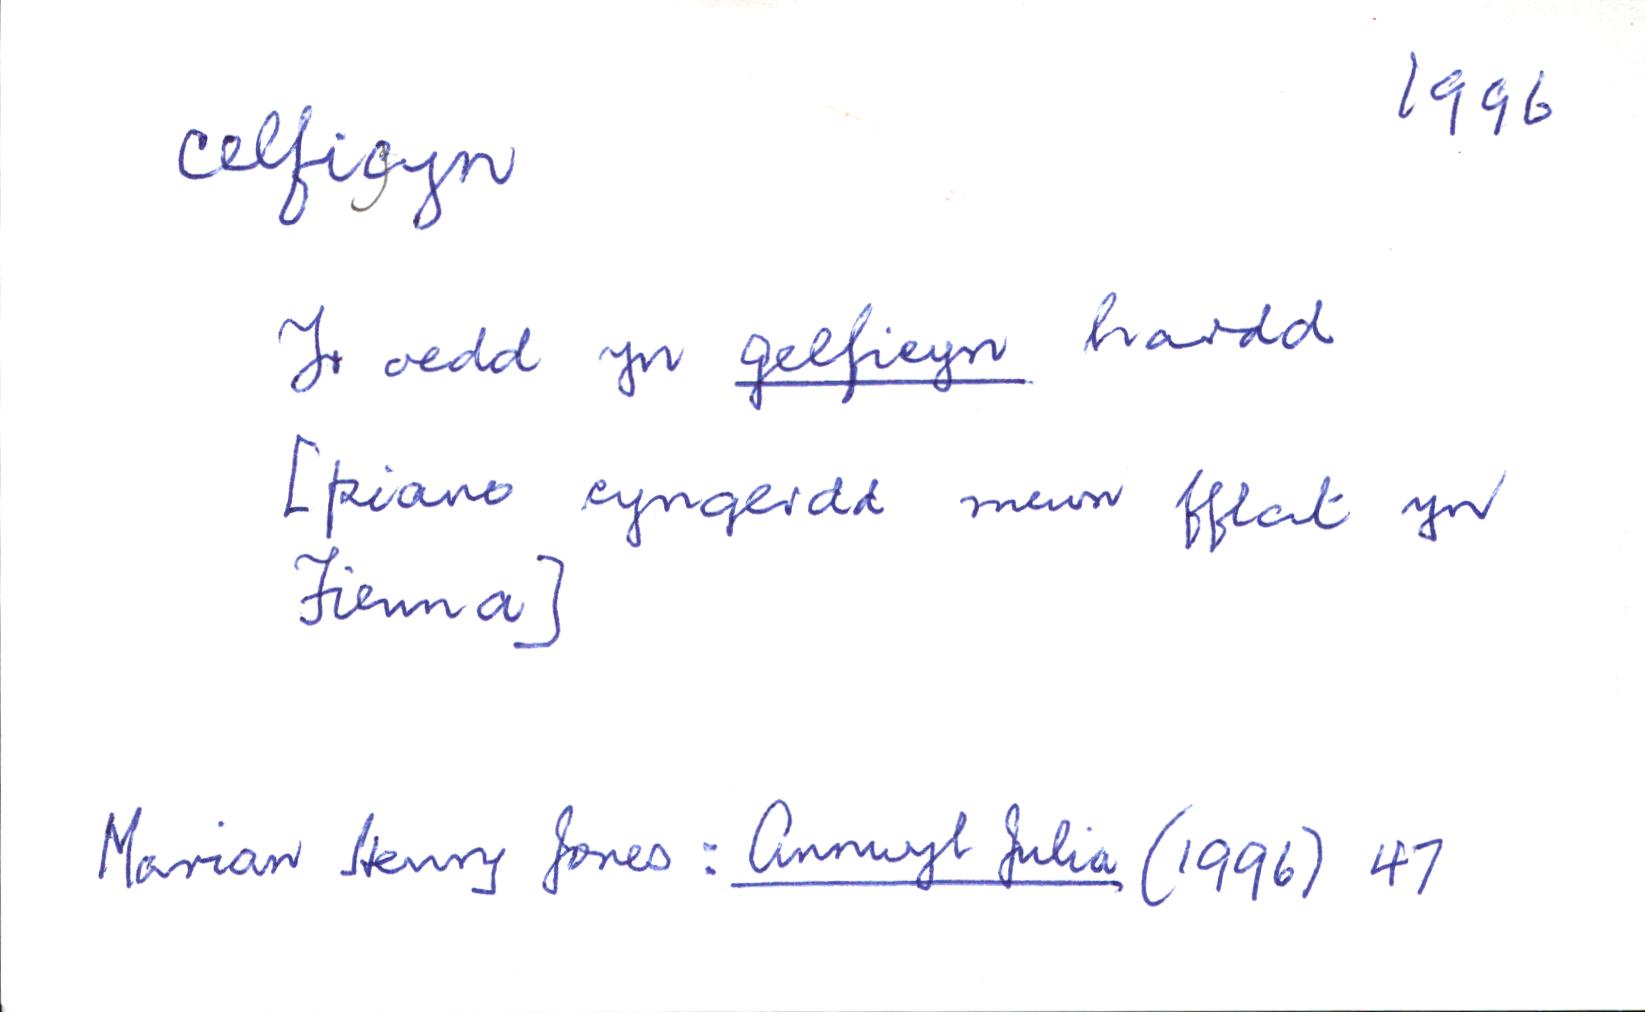 1996
celfigyn
Yr oedd yn gelficyn hardd
[piano cyngerdd mewn fflat yn
Fienna]
Marian Henry Jones : Annwyl Julia (1996) 47